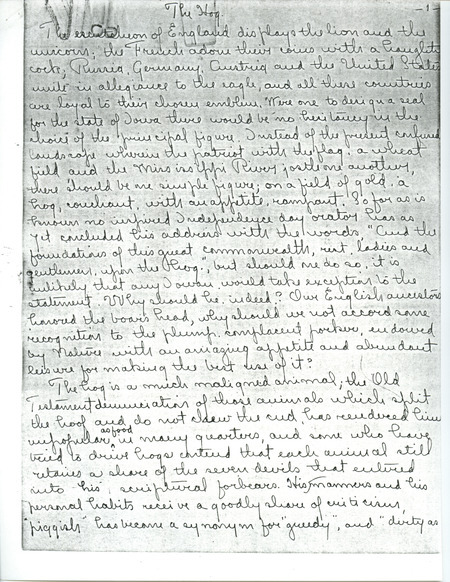 The Hog.
-1-
The escutcheon of England displays the lion and the
unicorn; the French adorn their coins with a haughty
cock; Russia, Germany, Austria and the United States
unite in allegiance to the eagle, and all these countries
are loyal to their chosen emblem. Were one to design a seal
for the state of Iowa there would be no hesitancy in the
choice of the principal figure. Instead of the present confused
landscape wherein the patriot with the flag, a wheat
field and the Mississippi River jostle one another,
there should be one simple figure; on a field of gold, a
hog, couchant, with an appetite, rampant. So far as is
known no inspired Independence day orator has as
yet concluded his address with the words. "And the
foundations of this great commonwealth, rest, ladies and
gentlemen, upon the hog", but should one do so, it is
unlikely that any Iowan would take exception to the
statement. Why should he, indeed? Our English ancestors
honored the boar's head, why should we not accord some
recognition to the plump, complacent porker, endowed
by Nature with an amazing appetite and abundant
leisure for making the best use of it?
The hog is a much maligned animal; the Old
Testament denunciation of those animals which split
the hoof and do not chew the cud, has rendered him
unpopular as food in many quarters, and some who have
tried to drive hogs contend that each animal still
retains a share of the seven devils that entered
into his scriptural forbears. His manners and his
personal habits receive a goodly share of criticism,
"piggish" has become a synonym for "greedy", and "dirty as